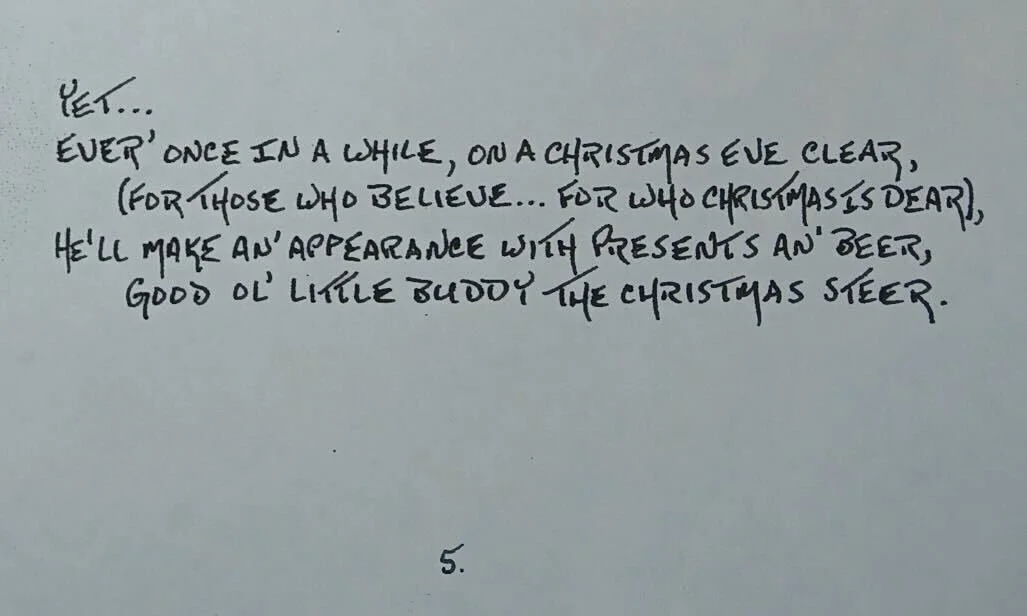 YET...
EVER' ONCE IN A WHILE, ON A CHRISTMAS EVE CLEAR,
(FOR THOSE WHO BELIEVE... FOR WHO CHRISTMAS IS DEAR),
HE'LL MAKE AN' APPEARANCE WITH PRESENTS AN' BEER,
GOOD OL' LITTLE BUDDY THE CHRISTMAS STEER.
5.